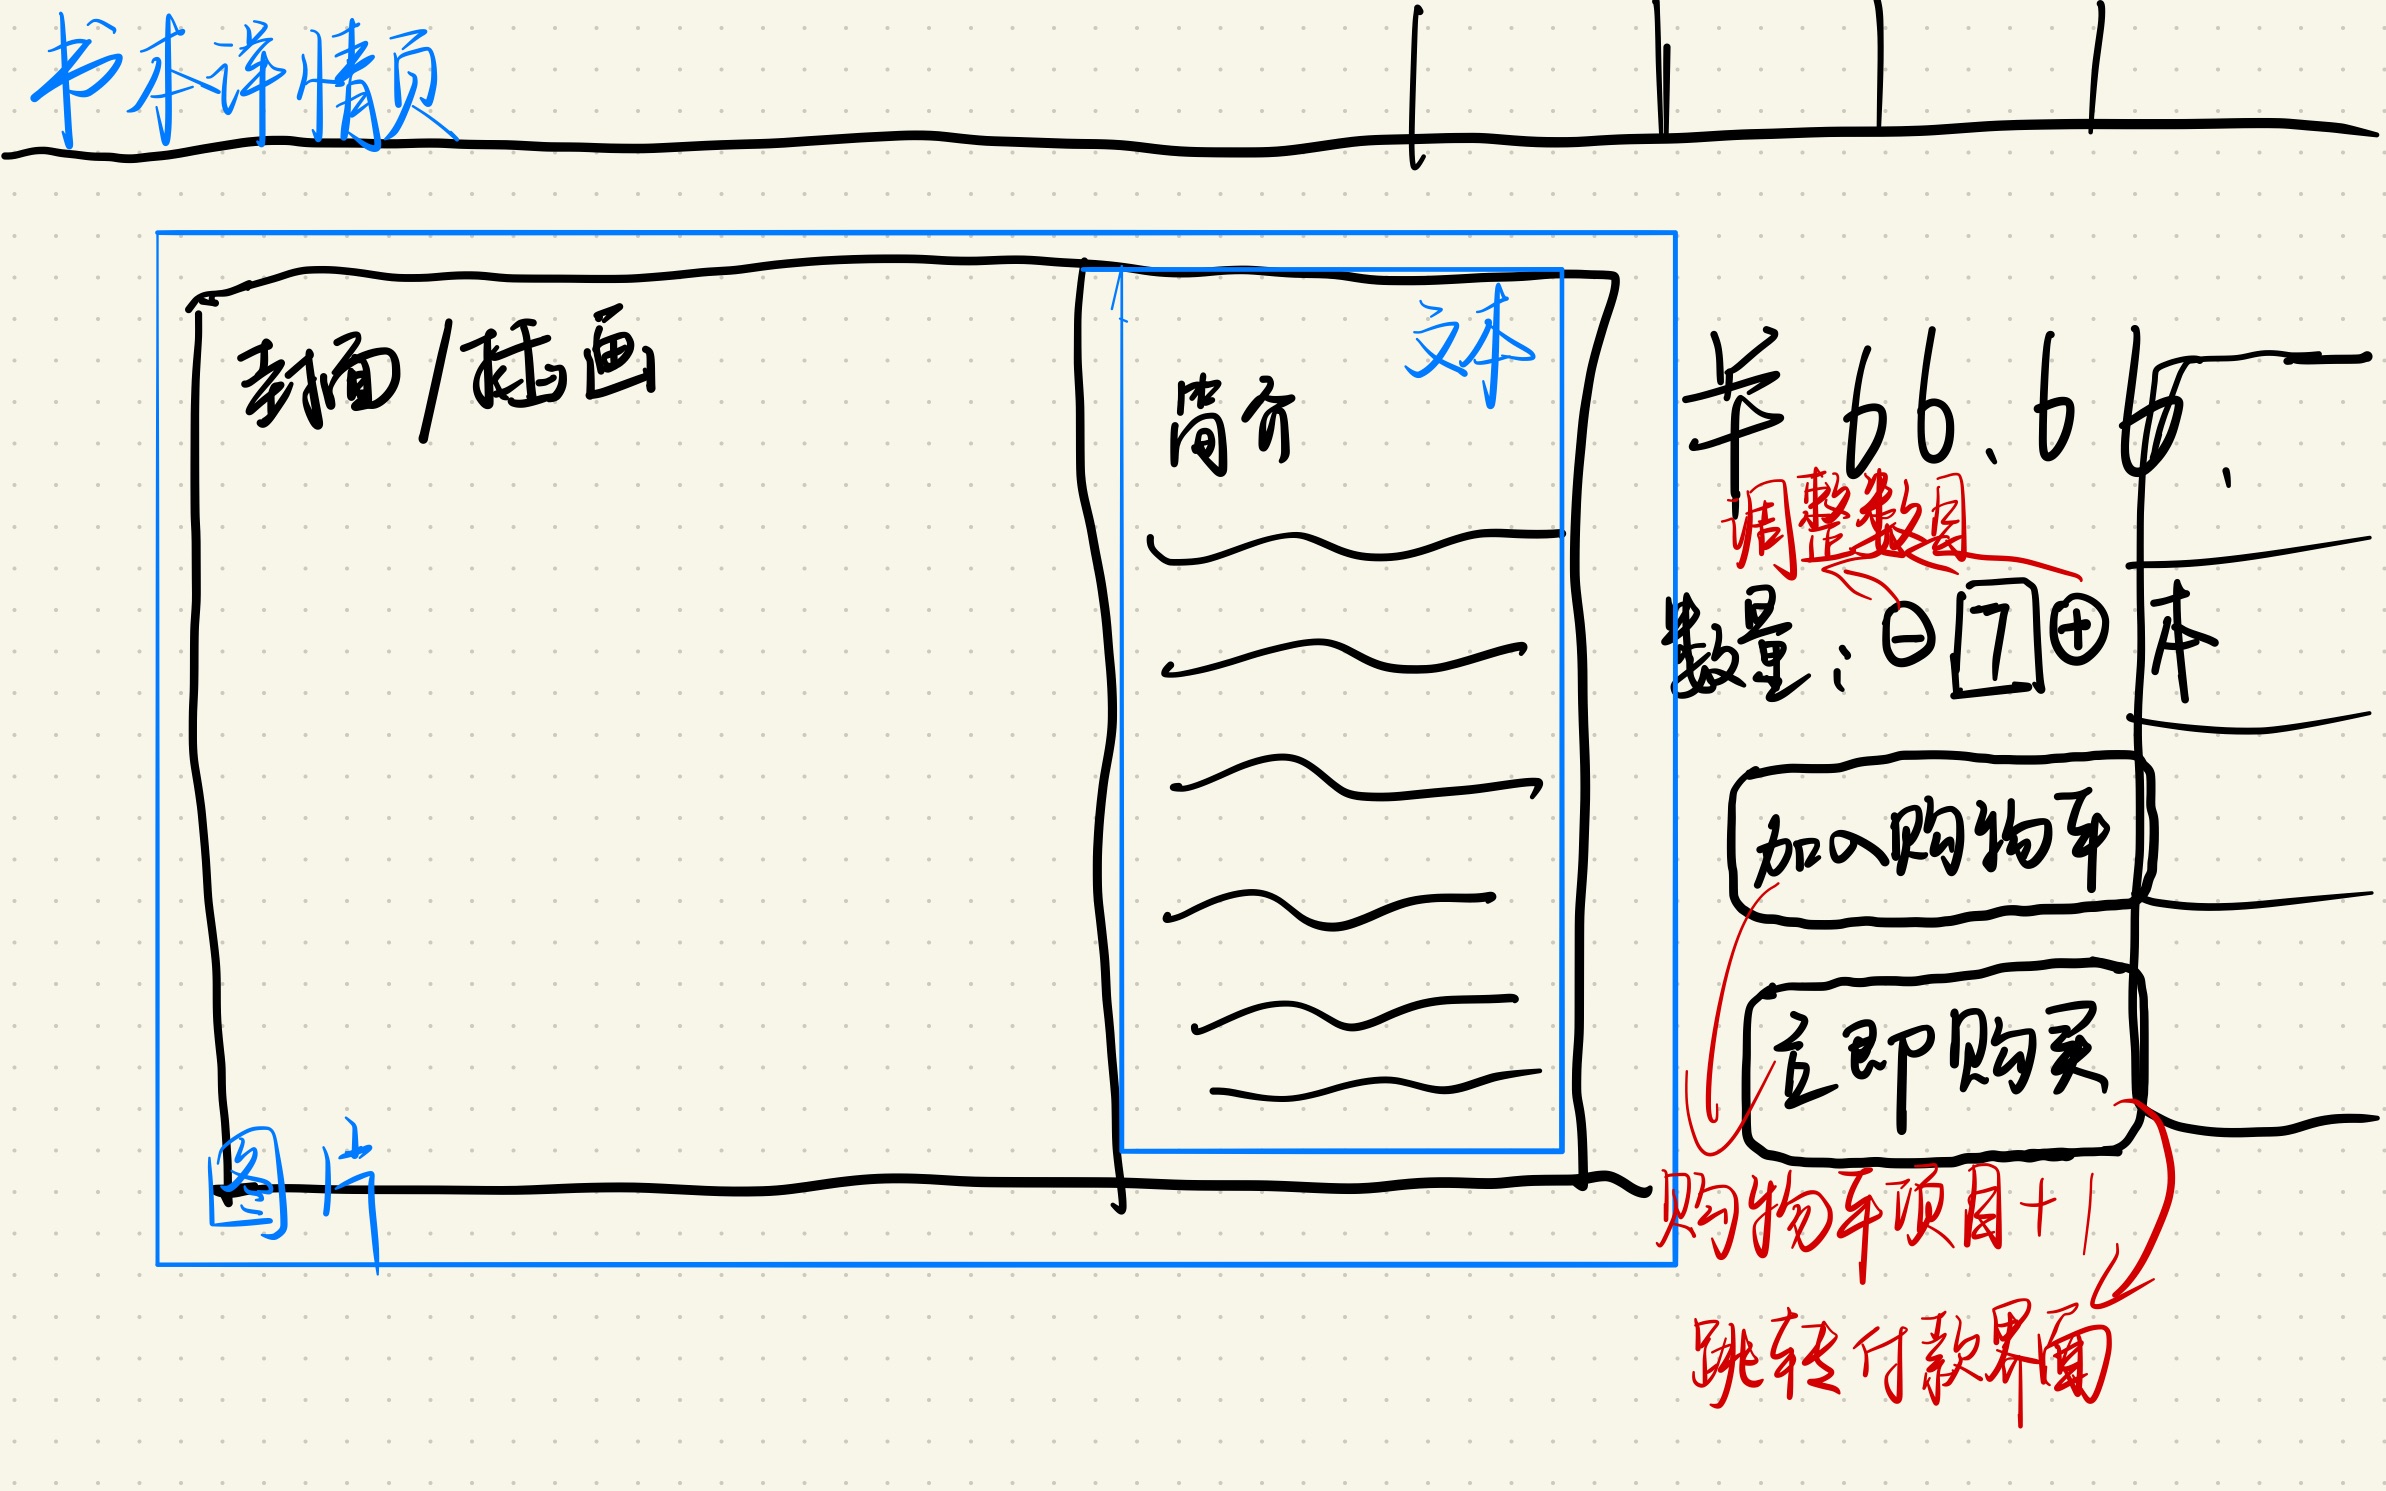 书本详情页
封面/插画
文本
简介
¥66.66
调整数量
数量：⊖ 7 ⊕ 本
加入购物车
立即购买
图片
购物车项目+1
跳转付款界面